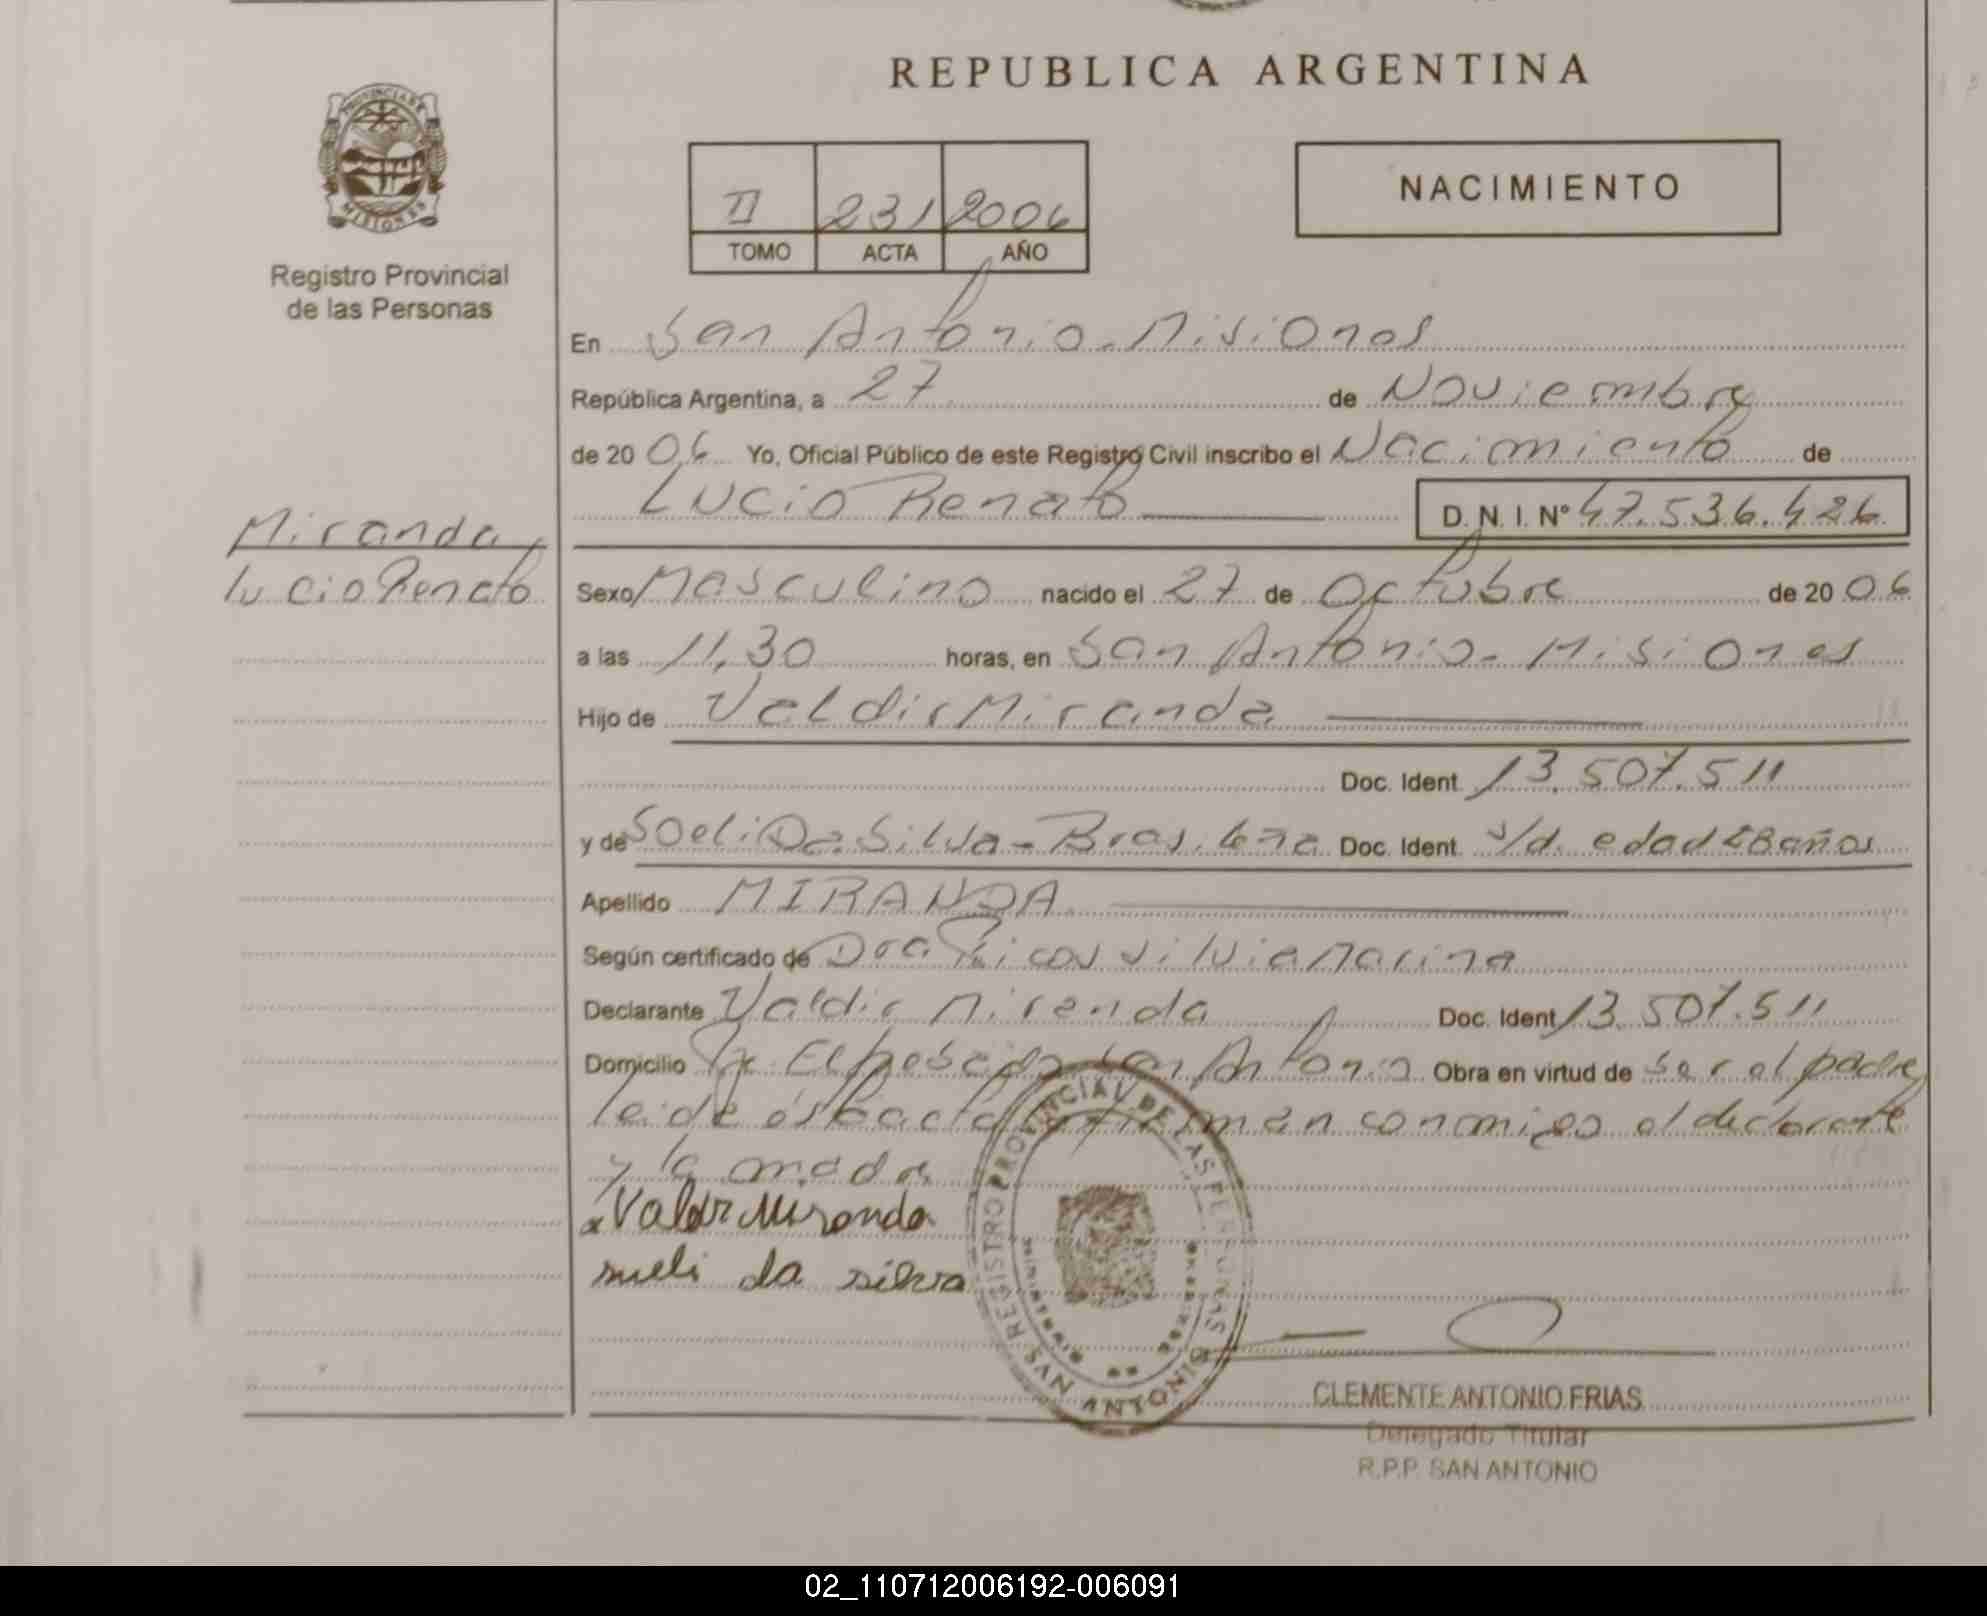 REPUBLICA ARGENTINA
PROVINCIA DE
MISIONES
Registro Provincial
de las Personas
II 231 2006
TOMO ACTA AÑO
NACIMIENTO
En San Antonio-Misiones
República Argentina, a 27 de Noviembre
de 2006 Yo, Oficial Público de este Registro Civil inscribo el Nacimiento de
Lucio Renato D. N. I. Nº 47.536.426
Miranda,
Lucio Renato
Sexo Masculino nacido el 27 de Octubre de 2006
a las 11,30 horas, en San Antonio-Misiones
Hijo de Valdir Miranda
Doc. Ident. 13.507.511
y de Soeli Da Silva-Brasileña Doc. Ident. s/d. edad 28 años
Apellido MIRANDA
Según certificado de Dra Silvia Marina
Declarante Valdir Miranda Doc. Ident 13.507.511
Domicilio San Antonio Obra en virtud de ser el padre
leida esta acta firman conmigo el declarante
y la madre
x Valdir Miranda
sueli da silva
REGISTRO PROVINCIAL DE LAS PERSONAS
SAN ANTONIO
CLEMENTE ANTONIO FRIAS
Delegado Titular
R.P.P. SAN ANTONIO
02_110712006192-006091